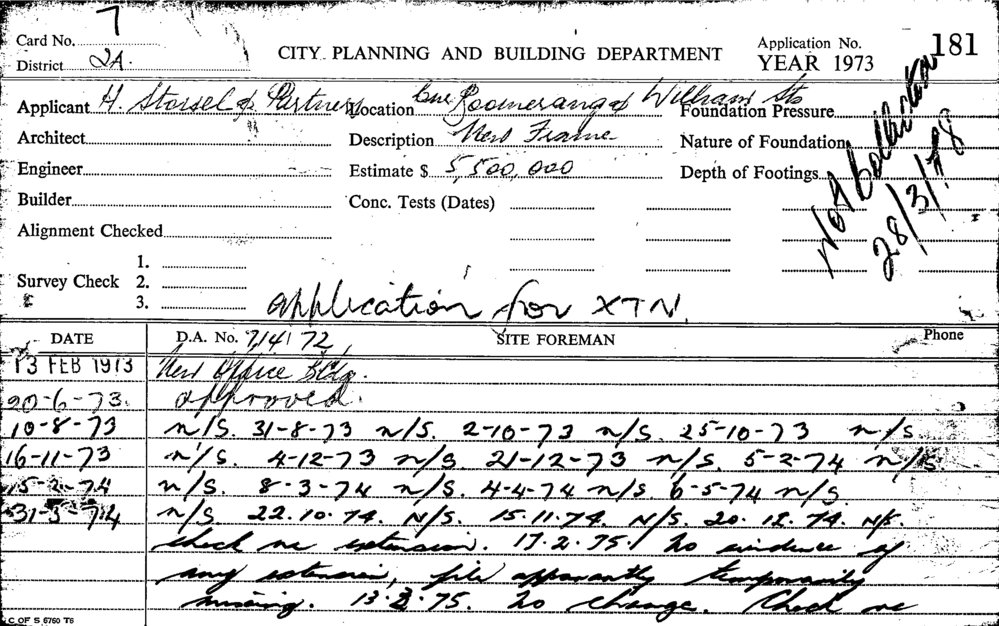 Card No. 7
District 2A.
CITY PLANNING AND BUILDING DEPARTMENT
Application No. 181
YEAR 1973
Applicant H. Stossel & Partners
Location Cnr Boomerang & William Sts
Foundation Pressure
Architect
Description New Frame
Nature of Foundation
Engineer
Estimate $ 5,500,000
Depth of Footings
Builder
Conc. Tests (Dates)
Not Collected
28/3/78
Alignment Checked
Survey Check 1.
2.
3.
application for XTN.
DATE D.A. No. 714/72 SITE FOREMAN Phone
13 FEB 1973 New Office Bldg.
20-6-73. approved.
10-8-73 n/S. 31-8-73 n/S. 2-10-73 n/S. 25-10-73 n/S
16-11-73 n/S. 4-12-73 n/S. 21-12-73 n/S. 5-2-74 n/S
15-2-74 n/S. 8-3-74 n/S. 4-4-74 n/S. 6-5-74 n/S
31-5-74 n/S 22.10.74. N/S. 15.11.74. N/S. 20.12.74. N/S.
check re extension. 17.2.75. No evidence of
any extension, file apparantly temporarily
missing. 13.3.75. No change. Check re
C OF S 6760 T6